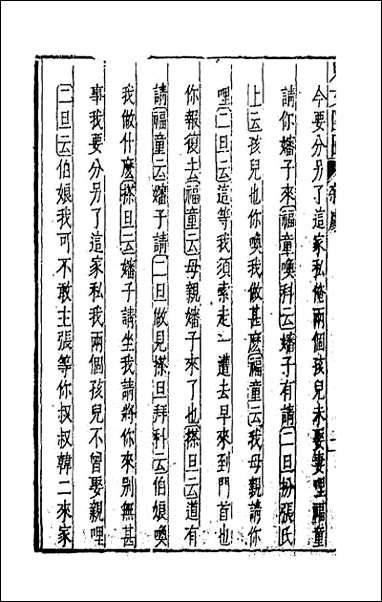 今要分另了這家私俺兩個孩兒未娶妻哩福童
請你嬸子來福童喚科云嬸子有請二旦扮張氏
上云孩兒也你喚我做甚麽福童云我母親請你
哩二旦云這等我須索走一遭去早來到門首也
你報復去福童云母親嬸子來了也搽旦云道有
請福童云嬸子請二旦做見搽旦拜科云伯娘喚
我做什麽搽旦云嬸子請坐我請將你來别無甚
事我要分另了這家私我兩個孩兒不曾娶親哩
二旦云伯娘我可不敢主張等你叔叔韓二來家